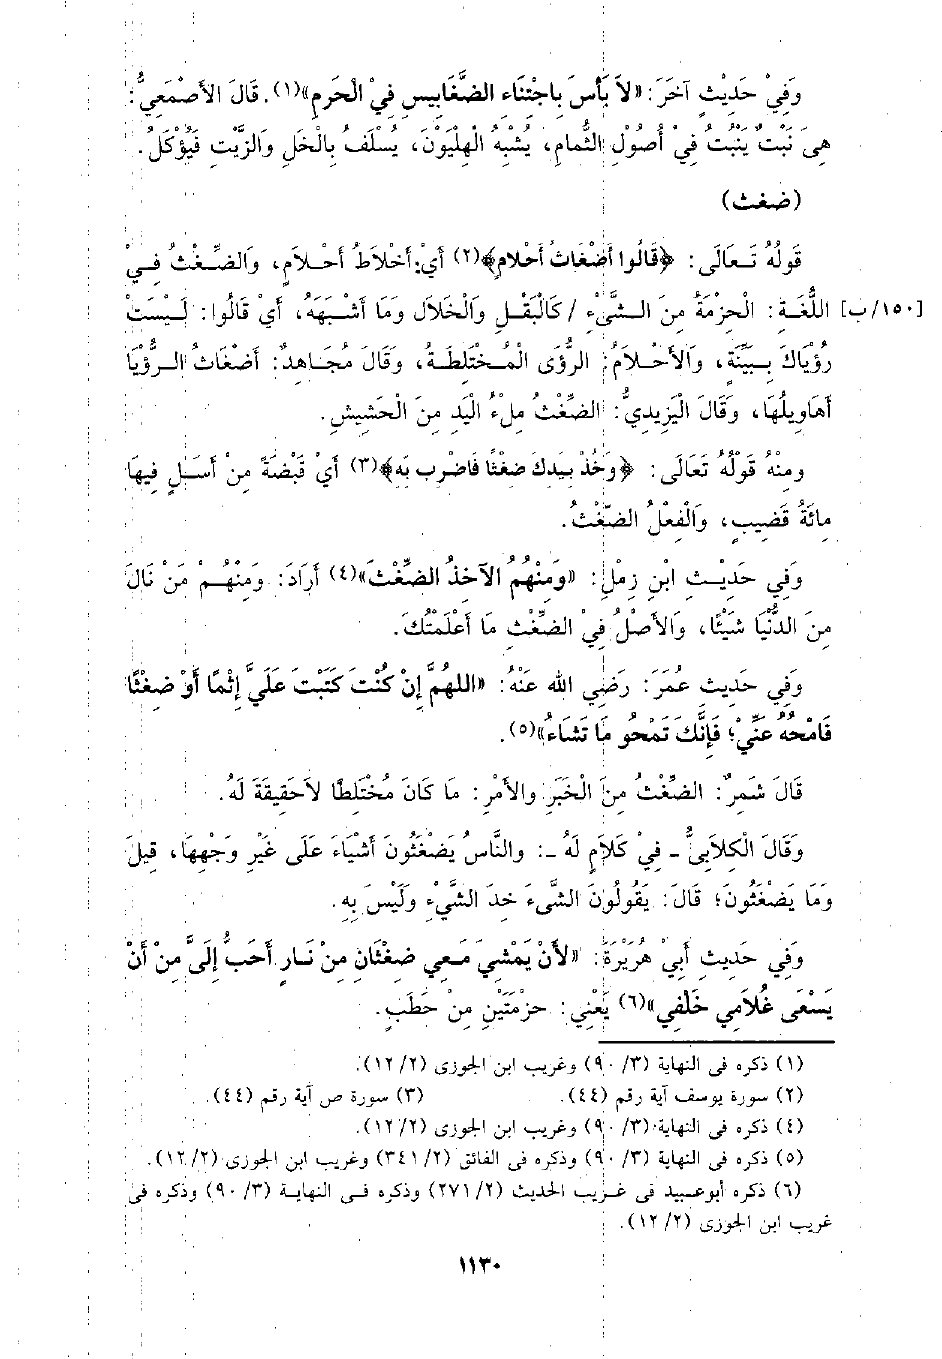 وَفِيْ حَدِيْثٍ آخَرَ: «لاَ بَأْسَ بِاجْتِنَاءِ الضَّغَابِيسِ فِيْ الْحَرَمِ»(١). قَالَ الأَصْمَعِيُّ:
هِىَ نَبْتٌ يَنْبُتُ فِيْ أُصُوْلِ الثُّمَامِ، يُشْبِهُ الْهِلْيَوْنَ، يُسْلَفُ بِالْخَلِّ وَالزَّيْتِ فَيُؤْكَلُ.
(ضغث)
قَوْلُهُ تَعَالَى: ﴿قَالُوا أَضْغَاثُ أَحْلامٍ﴾(٢) أَيْ: أَخْلَاطُ أَحْلاَمٍ، وَالضِّغْثُ فِيْ
[١٥٠/ب] اللُّغَةِ: الْحِزْمَةُ مِنَ الشَّيْءِ / كَالْبَقْلِ وَالْخَلَالِ وَمَا أَشْبَهَهُ، أَيْ قَالُوا: لَيْسَتْ
رُؤْيَاكَ بِبَيِّنَةٍ، وَالأَحْلاَمُ: الرُّؤَى الْمُخْتَلِطَةُ، وَقَالَ مُجَاهِدٌ: أَضْغَاثُ الرُّؤْيَا
أَهَاوِيلُهَا، وَقَالَ الْيَزِيدِيُّ: الضِّغْثُ مِلْءُ الْيَدِ مِنَ الْحَشِيْشِ.
وَمِنْهُ قَوْلُهُ تَعَالَى: ﴿وَخُذْ بِيَدِكَ ضِغْثًا فَاضْرِب بِّهِ﴾(٣) أَيْ قَبْضَةً مِنْ أَسَلٍ فِيهَا
مِائَةُ قَضِيبٍ، وَالْفِعْلُ الضَّغْثُ.
وَفِي حَدِيْثِ ابْنِ زِمْلٍ: «وَمِنْهُمُ الآخِذُ الضِّغْثَ»(٤) أَرَادَ: وَمِنْهُمْ مَنْ نَالَ
مِنَ الدُّنْيَا شَيْئًا، وَالأَصْلُ فِيْ الضِّغْثِ مَا أَعْلَمْتُكَ.
وَفِي حَدِيثِ عُمَرَ: رَضِي الله عَنْهُ: «اللهُمَّ إِنْ كُنْتَ كَتَبْتَ عَلَيَّ إِثْمًا أَوْ ضِغْثًا
فَامْحُهُ عَنِّيْ؛ فَإِنَّكَ تَمْحُو مَا تَشَاءُ»(٥).
قَالَ شَمِرٌ: الضِّغْثُ مِنَ الْخَبَرِ والأَمْرِ: مَا كَانَ مُخْتَلِطًا لاَحَقِيقَةَ لَهُ.
وَقَالَ الْكِلَابِيُّ ـ فِيْ كَلاَمٍ لَهُ ـ: والنَّاسُ يَضْغَثُونَ أَشْيَاءَ عَلَى غَيْرِ وَجْهِهَا، قِيلَ
وَمَا يَضْغَثُونَ؛ قَالَ: يَقُولُونَ الشَّىءَ خِدَ الشَّيْءِ وَلَيْسَ بِهِ.
وَفِي حَدِيثِ أَبِي هُرَيْرَةَ: «لأَنْ يَمْشِيَ مَعِي ضِغْثَانِ مِنْ نَارٍ أَحَبُّ إِلَيَّ مِنْ أَنْ
يَسْعَى غُلَامِي خَلْفِي»(٦) يَعْنِي: حِزْمَتَيْنِ مِنْ حَطَبٍ.
(١) ذكره فى النهاية (٣/ ٩٠) وغريب ابن الجوزى (٢/ ١٢).
(٢) سورة يوسف آية رقم (٤٤). (٣) سورة ص آية رقم (٤٤).
(٤) ذكره فى النهاية (٣/ ٩٠) وغريب ابن الجوزى (٢/ ١٢).
(٥) ذكره فى النهاية (٣/ ٩٠) وذكره فى الفائق (٢/ ٣٤١) وغريب ابن الجوزى (٢/ ١٢).
(٦) ذكره أبوعبيد فى غريب الحديث (٢/ ٢٧١) وذكره فى النهاية (٣/ ٩٠) وذكره فى
غريب ابن الجوزى (٢/ ١٢).
١١٣٠